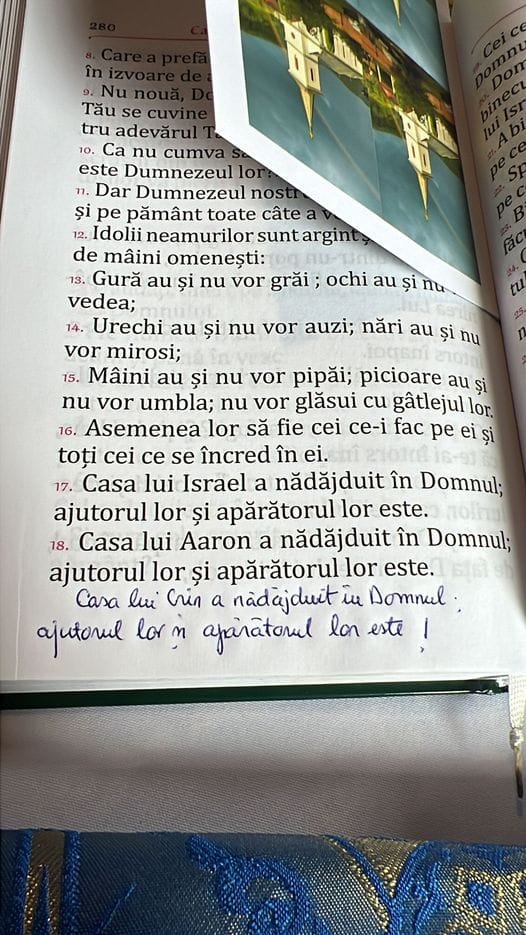 280
8. Care a prefă
în izvoare de
9. Nu nouă,
Tău se cuvine
tru adevărul
10. Ca nu cumva
este Dumnezeul lor?
11. Dar Dumnezeul nostr
și pe pământ toate câte a
12. Idolii neamurilor sunt argint
de mâini omenești:
13. Gură au și nu vor grăi ; ochi au și nu
vedea;
14. Urechi au și nu vor auzi; nări au și nu
vor mirosi;
15. Mâini au și nu vor pipăi; picioare au și
nu vor umbla; nu vor glăsui cu gâtlejul lor.
16. Asemenea lor să fie cei ce-i fac pe ei și
toți cei ce se încred în ei.
17. Casa lui Israel a nădăjduit în Domnul;
ajutorul lor și apărătorul lor este.
18. Casa lui Aaron a nădăjduit în Domnul;
ajutorul lor și apărătorul lor este.
Casa lui Crin a nădăjduit în Domnul;
ajutorul lor și apărătorul lor este !
Cei ce
Domnu
Dom
binecu
lui Isr
A bi
pe ce